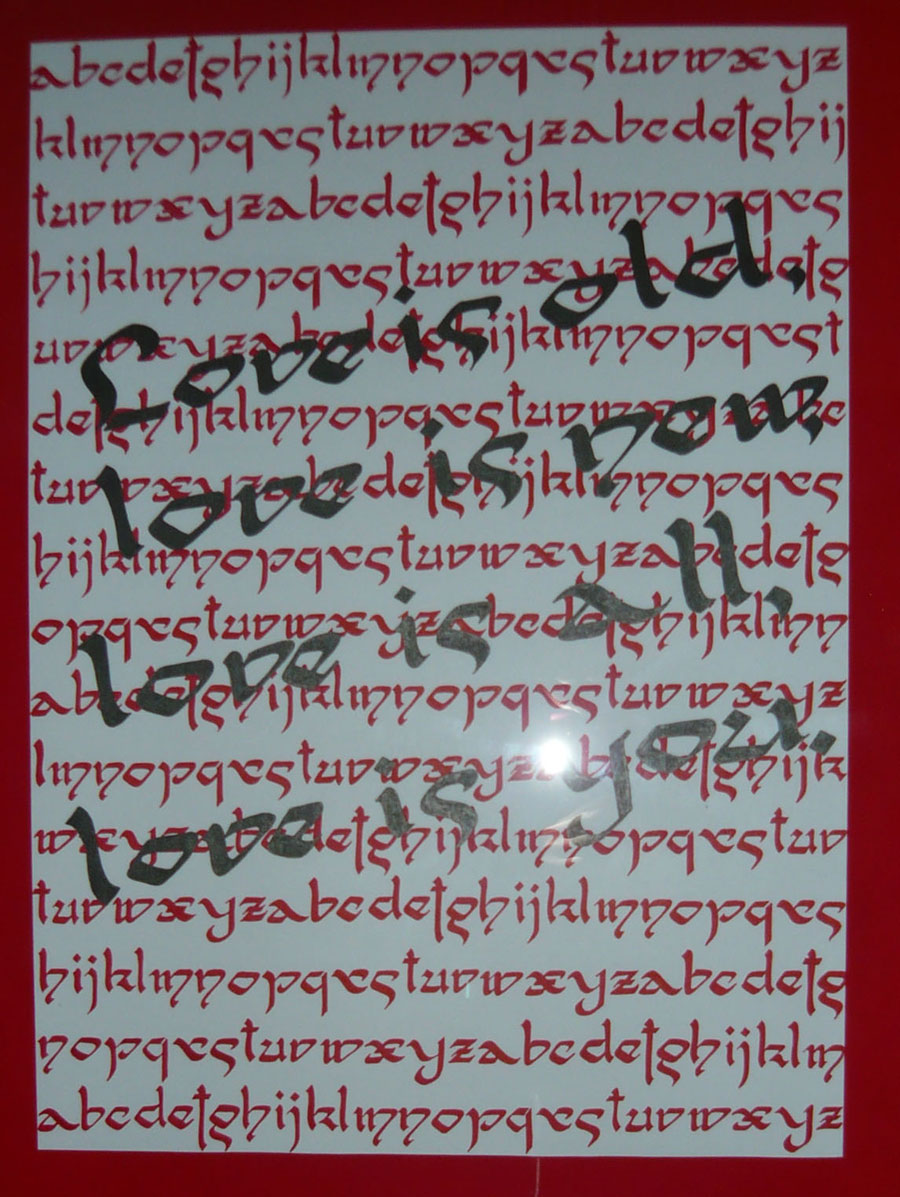 abcdefghijklmnopqrstuvwxyz
klmnopqrstuvwxyzabcdefghij
tuvwxyzabcdefghijklmnopqrs
hijklmnopqrstuvwxyzabcdefg
uvwxyzabcdefghijklmnopqrst
defghijklmnopqrstuvwxyzabc
tuvwxyzabcdefghijklmnopqrs
hijklmnopqrstuvwxyzabcdefg
opqrstuvwxyzabcdefghijklmn
abcdefghijklmnopqrstuvwxyz
lmnopqrstuvwxyzabcdefghijk
wxyzabcdefghijklmnopqrstuv
tuvwxyzabcdefghijklmnopqrs
hijklmnopqrstuvwxyzabcdefg
nopqrstuvwxyzabcdefghijklm
abcdefghijklmnopqrstuvwxyz
Love is old,
love is new,
love is all,
love is you.